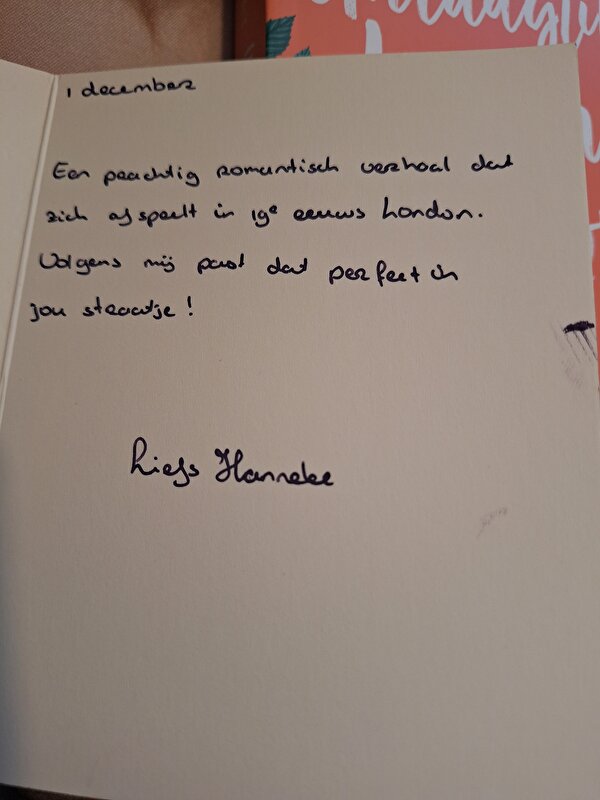 1 december
Een prachtig romantisch verhaal dat
zich afspeelt in 19e eeuws London.
Volgens mij past dat perfect in
jou straatje!
Liefs Hanneke